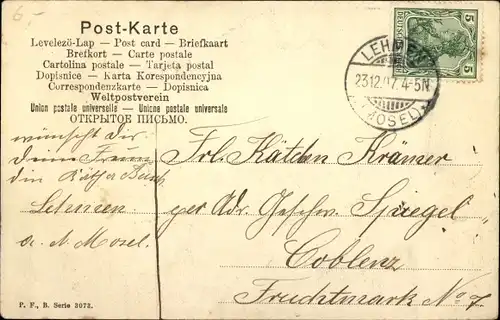 6.-
Post-Karte
Levelező-Lap — Post card — Briefkaart
Brefkort — Carte postale
Cartolina postale — Tarjeta postal
Dopisnice - Karta Korespondencyjna
Correspondenzkarte - Dopisnica
Weltpostverein
Union postale universelle — Unione postale universale
ОТКРЫТОЕ ПИСЬМО.
DEUTSCHES REICH
5 5
LEHMEN
23.12.07. 4-5N
(MOSEL)
wünscht Dir
Deine
die Käthe
Lehmen
a. d. Mosel.
Frl. Käthen Krämer
per Adr. Geschw. Spiegel
Coblenz
Fruchtmark No 7.
P. F., B. Serie 3073.